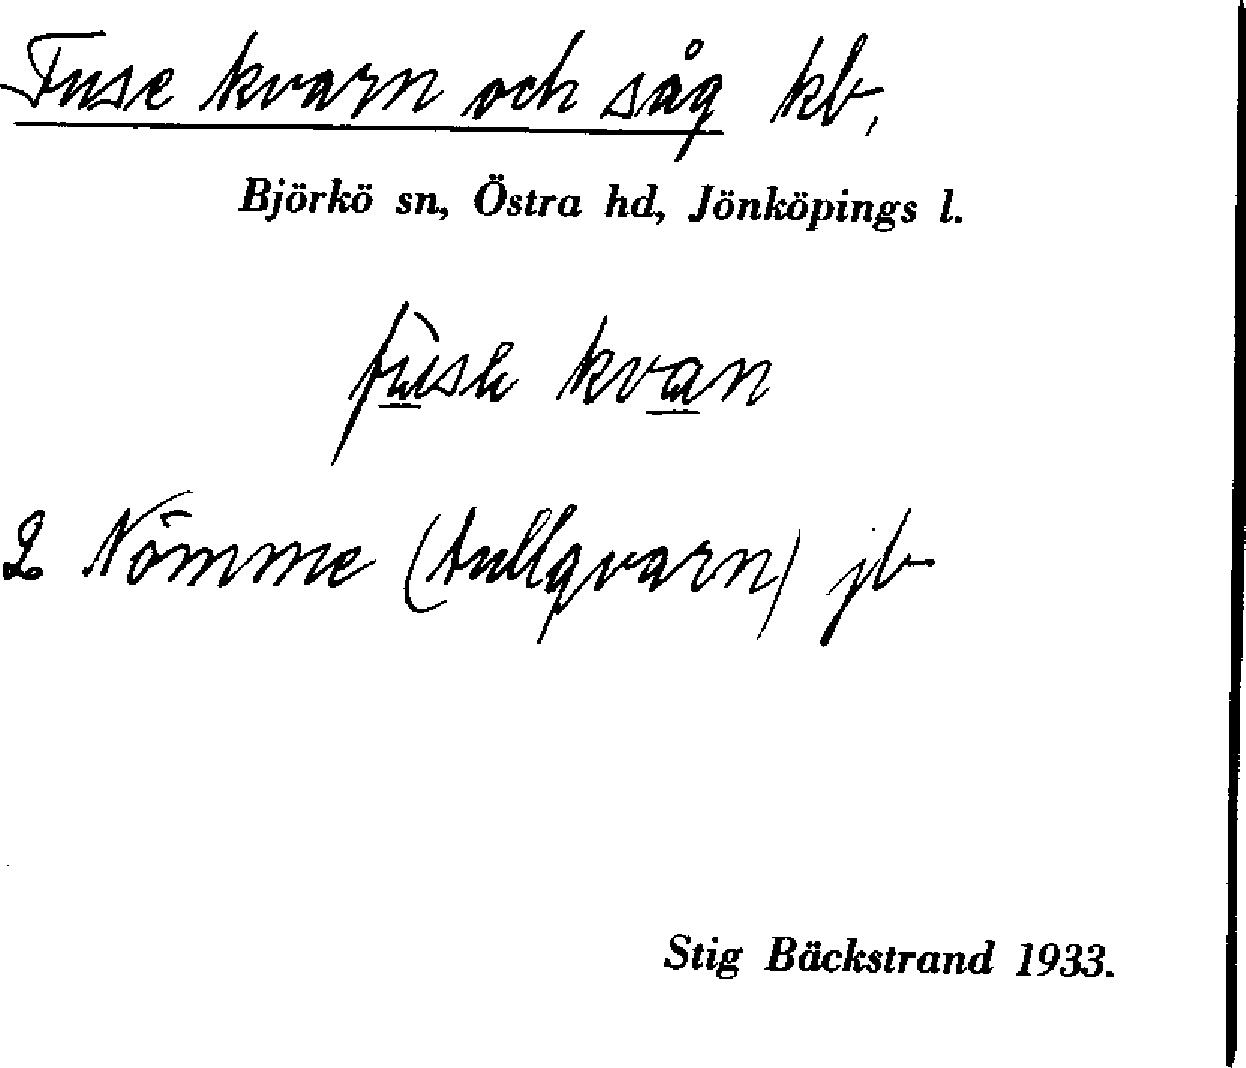 Fuse kvarn och såg kb,
Björkö sn, Östra hd, Jönköpings l.
kvan
2 Nömme (tullqvarn) jb
Stig Bäckstrand 1933.